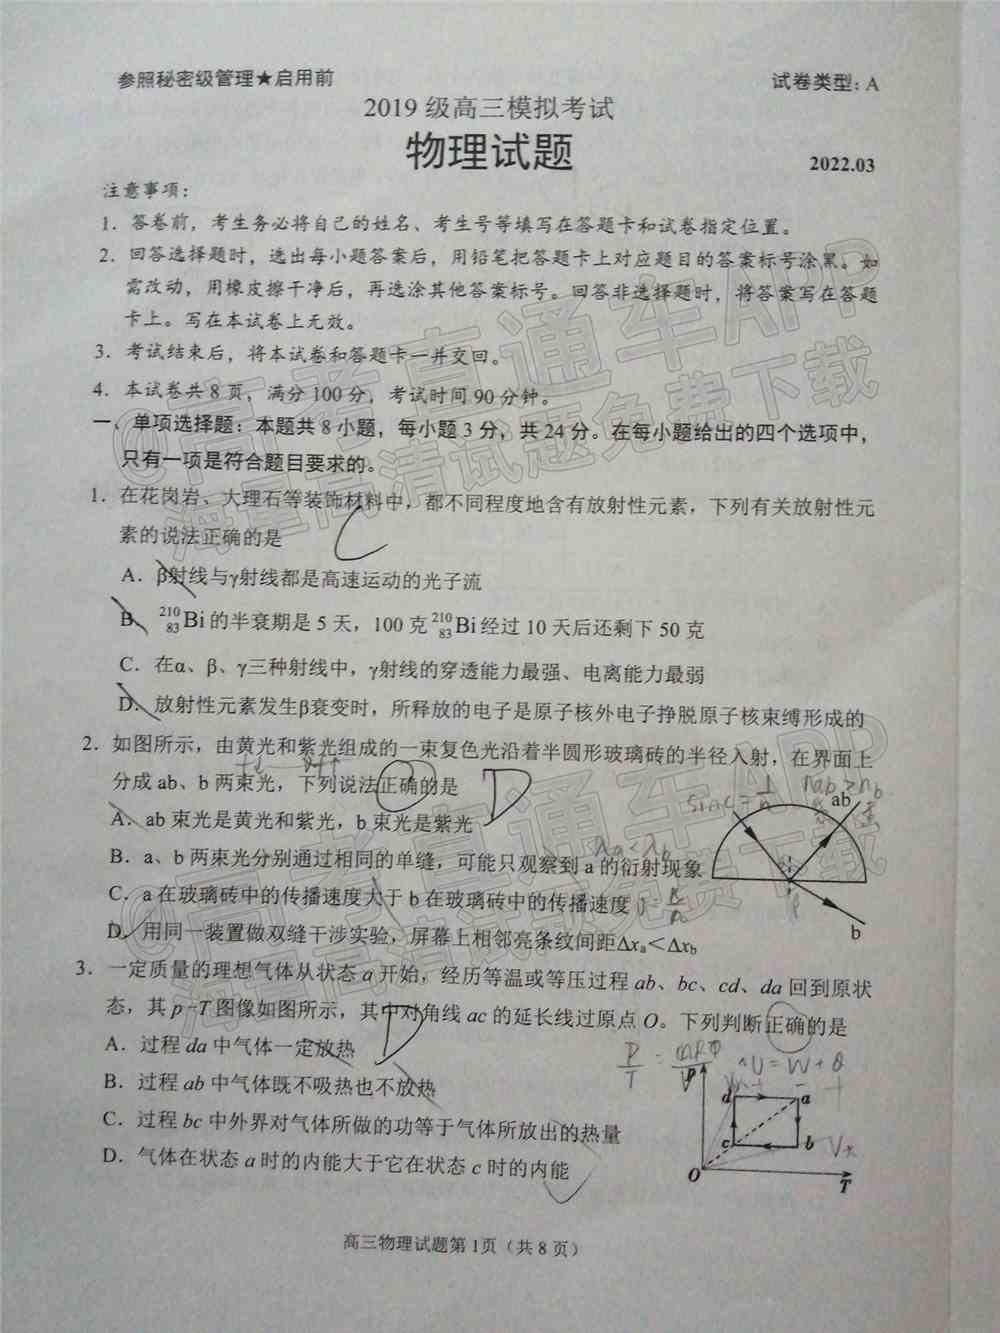 参照秘密级管理★启用前
试卷类型：A
2019 级高三模拟考试
物理试题
2022.03
注意事项：
1．答卷前，考生务必将自己的姓名、考生号等填写在答题卡和试卷指定位置。
2．回答选择题时，选出每小题答案后，用铅笔把答题卡上对应题目的答案标号涂黑。如
需改动，用橡皮擦干净后，再选涂其他答案标号。回答非选择题时，将答案写在答题
卡上。写在本试卷上无效。
3．考试结束后，将本试卷和答题卡一并交回。
4．本试卷共 8 页，满分 100 分，考试时间 90 分钟。
一、单项选择题：本题共 8 小题，每小题 3 分，共 24 分。在每小题给出的四个选项中，
只有一项是符合题目要求的。
1．在花岗岩、大理石等装饰材料中，都不同程度地含有放射性元素，下列有关放射性元
素的说法正确的是
C
A．β射线与γ射线都是高速运动的光子流
B．²¹⁰₈₃Bi 的半衰期是 5 天，100 克 ²¹⁰₈₃Bi 经过 10 天后还剩下 50 克
C．在α、β、γ三种射线中，γ射线的穿透能力最强、电离能力最弱
D．放射性元素发生β衰变时，所释放的电子是原子核外电子挣脱原子核束缚形成的
2．如图所示，由黄光和紫光组成的一束复色光沿着半圆形玻璃砖的半径入射，在界面上
分成 ab、b 两束光，下列说法正确的是
D
A．ab 束光是黄光和紫光，b 束光是紫光
B．a、b 两束光分别通过相同的单缝，可能只观察到 a 的衍射现象
C．a 在玻璃砖中的传播速度大于 b 在玻璃砖中的传播速度
D．用同一装置做双缝干涉实验，屏幕上相邻亮条纹间距Δxₐ＜Δx_b
sinC=1/n
λa<λb
ab
b
3．一定质量的理想气体从状态 a 开始，经历等温或等压过程 ab、bc、cd、da 回到原状
态，其 p−T 图像如图所示，其中对角线 ac 的延长线过原点 O。下列判断正确的是
D
A．过程 da 中气体一定放热
B．过程 ab 中气体既不吸热也不放热
C．过程 bc 中外界对气体所做的功等于气体所放出的热量
D．气体在状态 a 时的内能大于它在状态 c 时的内能
ΔU=W+Q
p
d
a
c
b
O
T
高三物理试题第 1页（共 8 页）
©高考直通车APP
海量高清试题免费下载
©高考直通车APP
海量高清试题免费下载